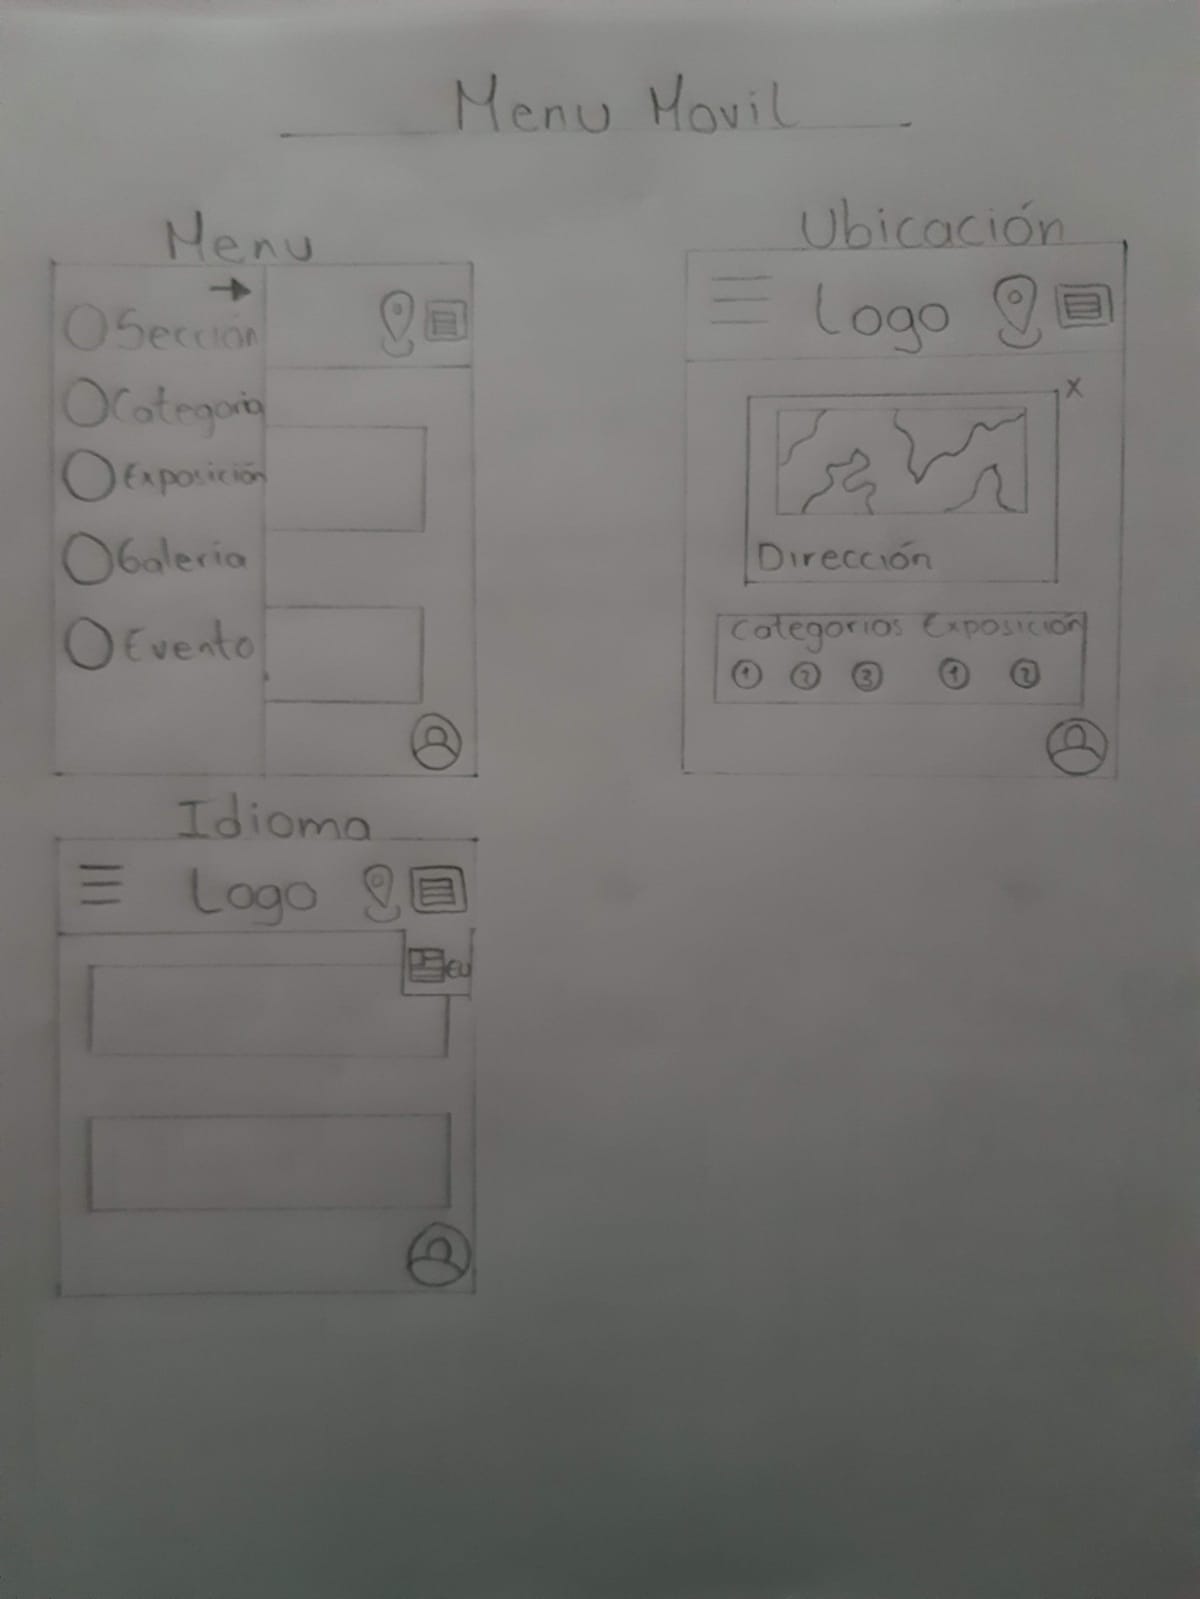 Menu Movil
Menu
Sección
Categoria
Exposición
Galeria
Evento
Ubicación
Logo
X
Dirección
Categorias Exposición
1 2 3 1 2
Idioma
Logo
EU